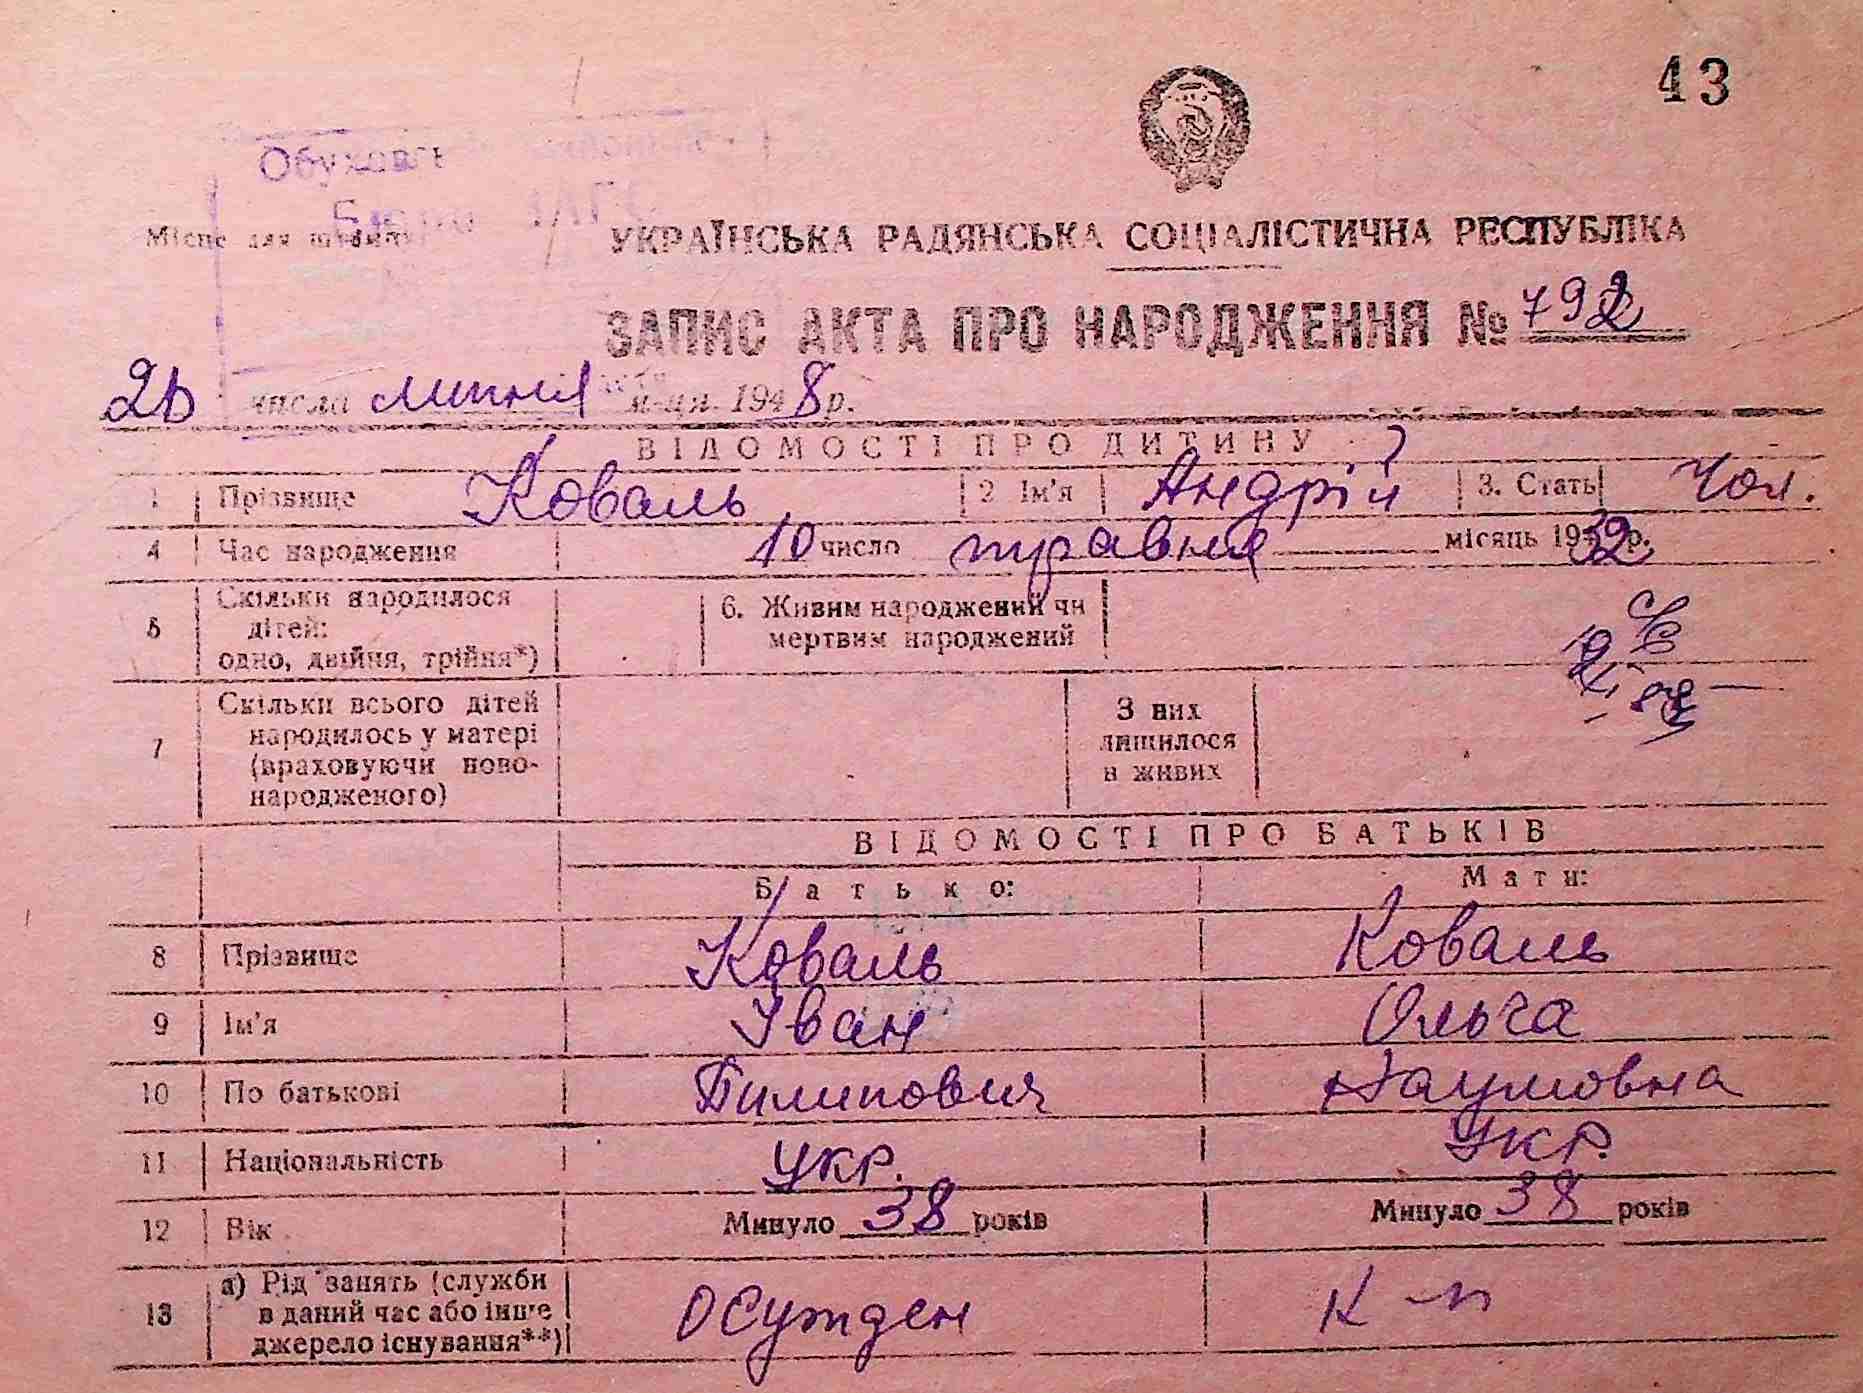 43
Обуховсь
Бюро ЗАГС
Місце для штампу
УКРАЇНСЬКА РАДЯНСЬКА СОЦІАЛІСТИЧНА РЕСПУБЛІКА
ЗАПИС АКТА ПРО НАРОДЖЕННЯ № 792
числа липня м-ця. 1948 р.
ВІДОМОСТІ ПРО ДИТИНУ
1 Прізвище Коваль 2 Ім'я Андрій 3. Стать Чол.
4 Час народження 10 число травня місяць 1932 р.
5 Скільки народилося дітей: одно, двійня, трійня*) 6. Живим народжений чи мертвим народжений
7 Скільки всього дітей народилось у матері (враховуючи новонародженого) З них лишилося в живих
ВІДОМОСТІ ПРО БАТЬКІВ
Батько: Мати:
8 Прізвище Коваль Коваль
9 Ім'я Іван Ольга
10 По батькові Пилипович Наумовна
11 Національність укр. укр.
12 Вік Минуло 38 років Минуло 38 років
13 а) Рід занять (служби в даний час або інше джерело існування**) осужден к-п